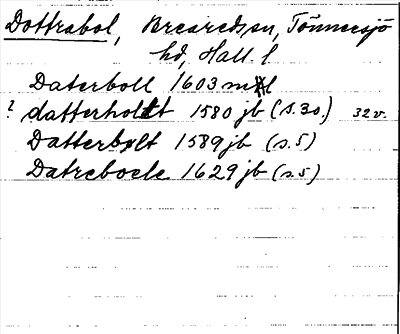 Dottrabol, Breared sn, Tönnersjö
hd, Hall. l
Daterboll 1603 mtl
? datterholtt 1580 jb (s. 30.) 32 v.
Datterbolt 1589 jb (s. 5)
Datreboele 1629 jb (s. 5)